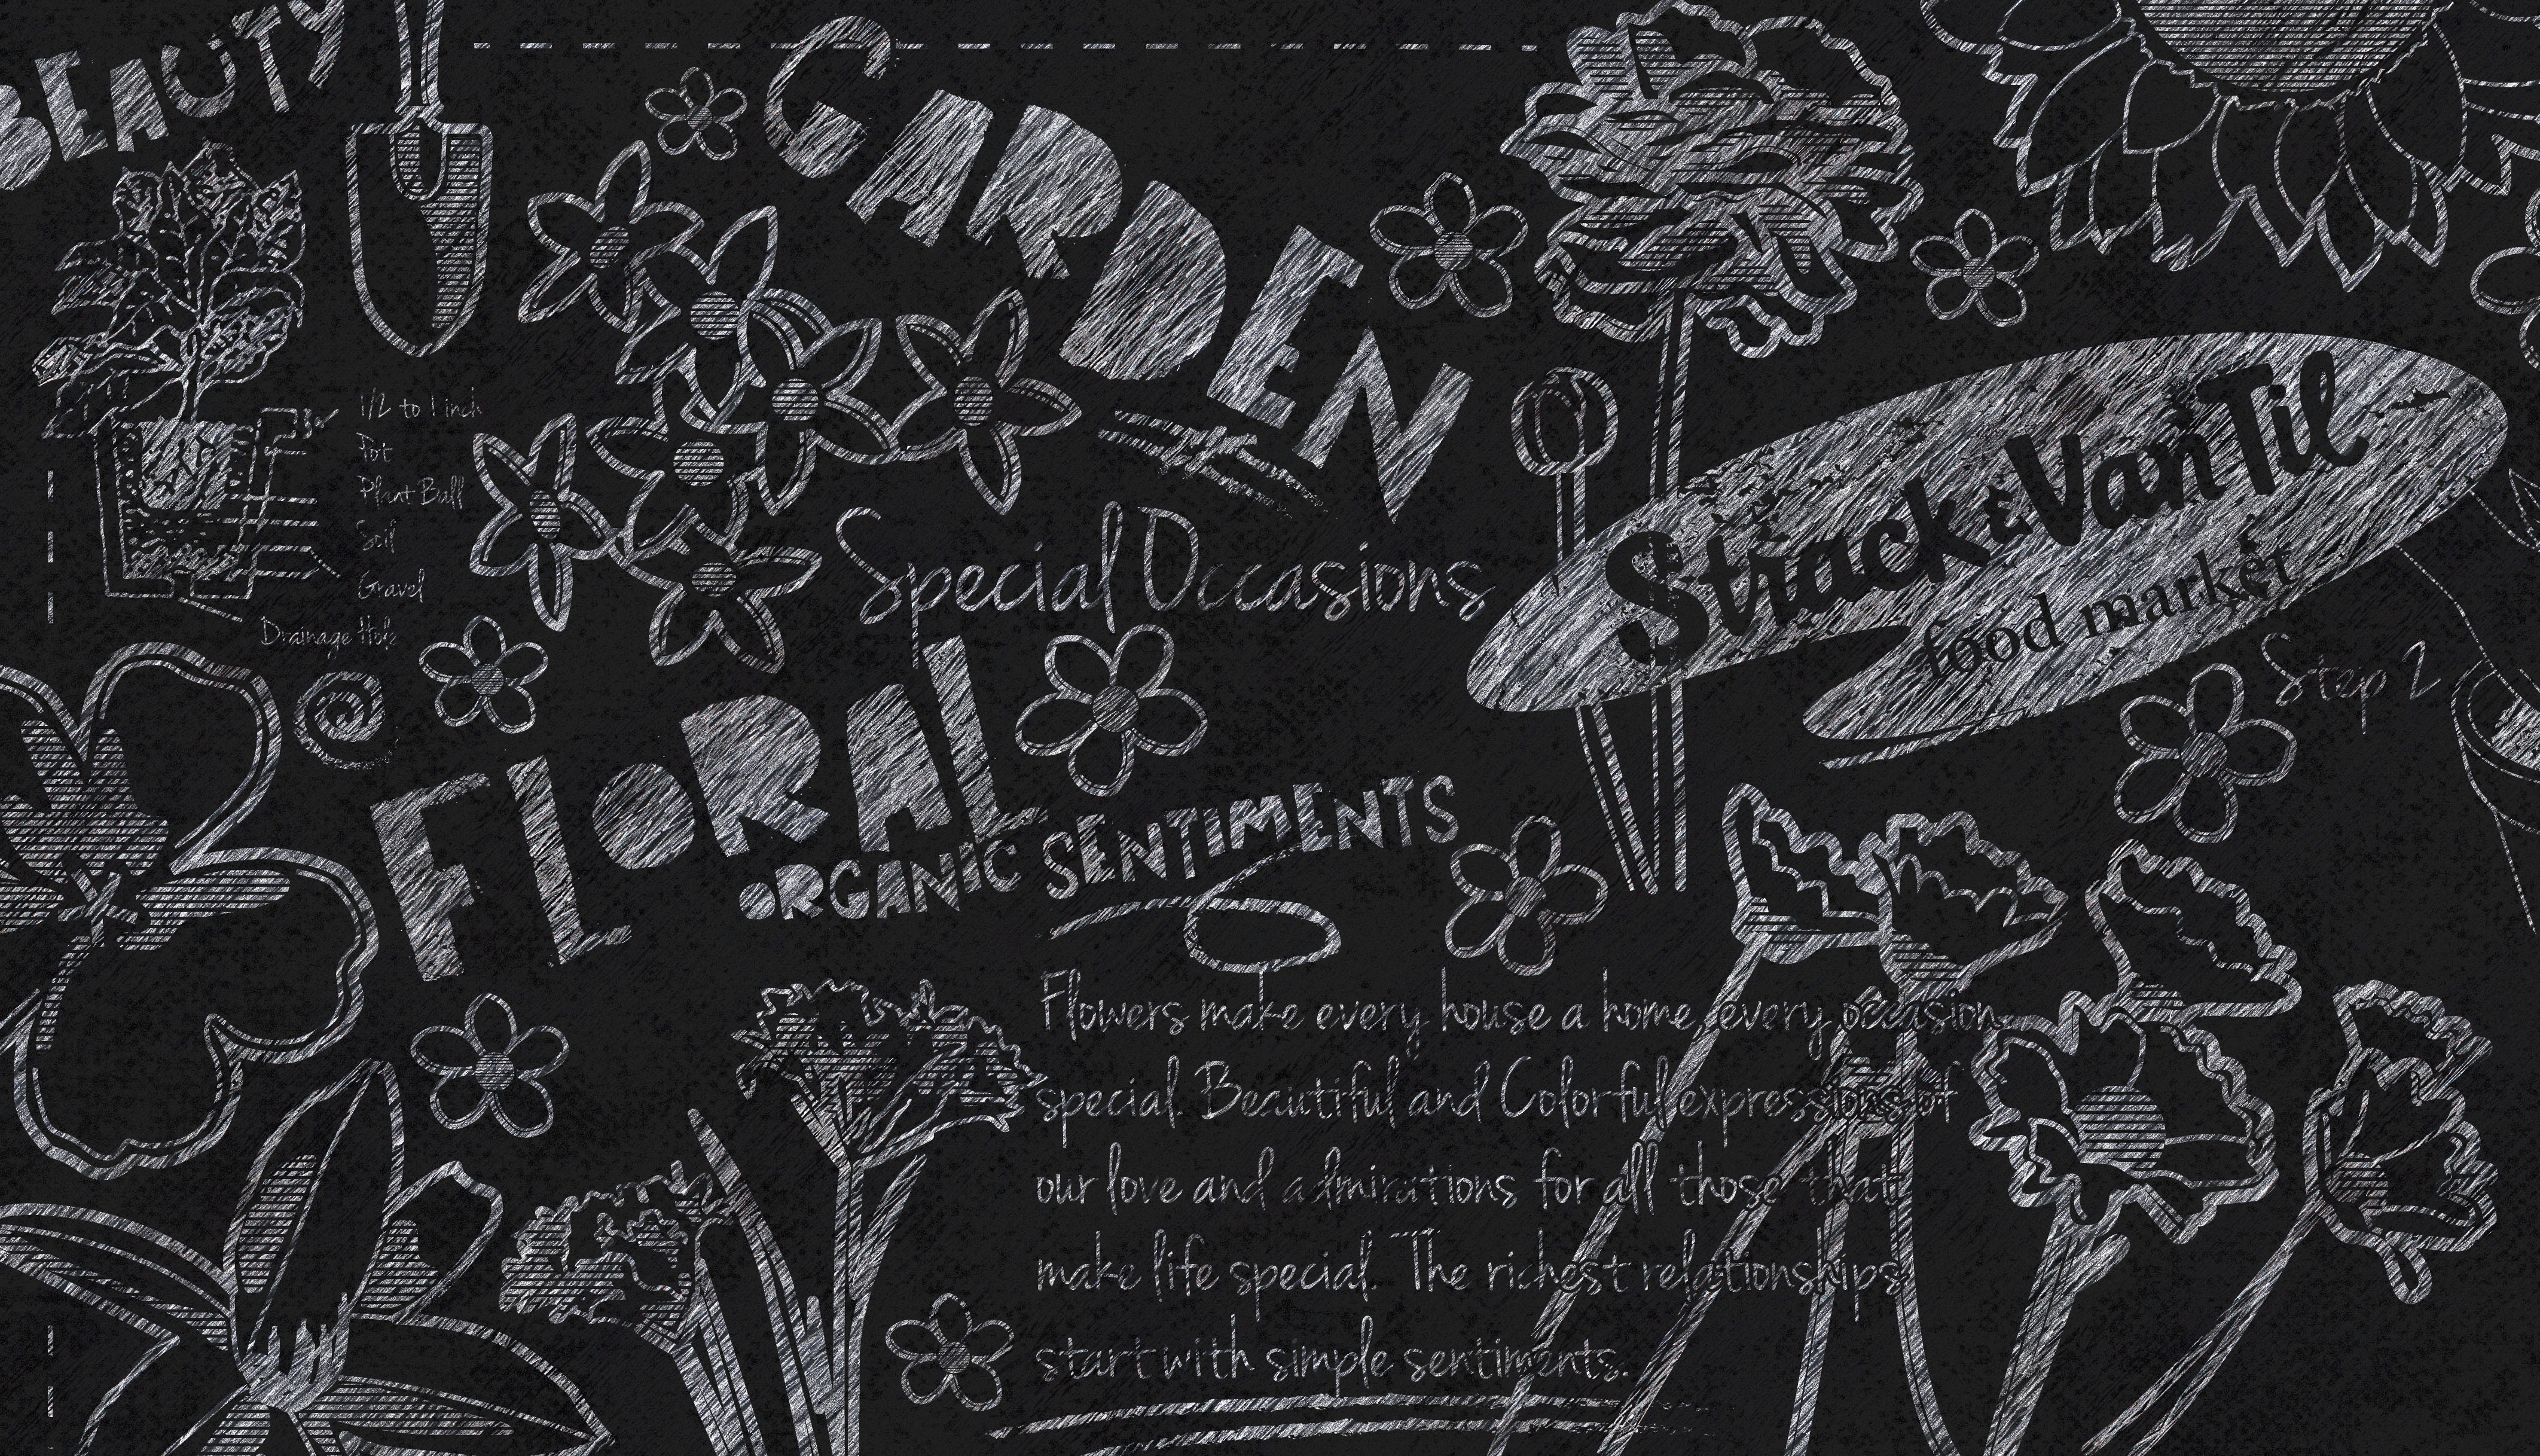 BEAUTY
GARDEN
1/2 to 1 inch
Pot
Plant Ball
Soil
Gravel
Drainage Hole
Special Occasions
Strack & VanTil
food market
Step 2
FLORAL
ORGANIC SENTIMENTS
Flowers make every house a home, every occasion
special. Beautiful and Colorful expressions of
our love and admirations for all those that
make life special. The richest relationships
start with simple sentiments.